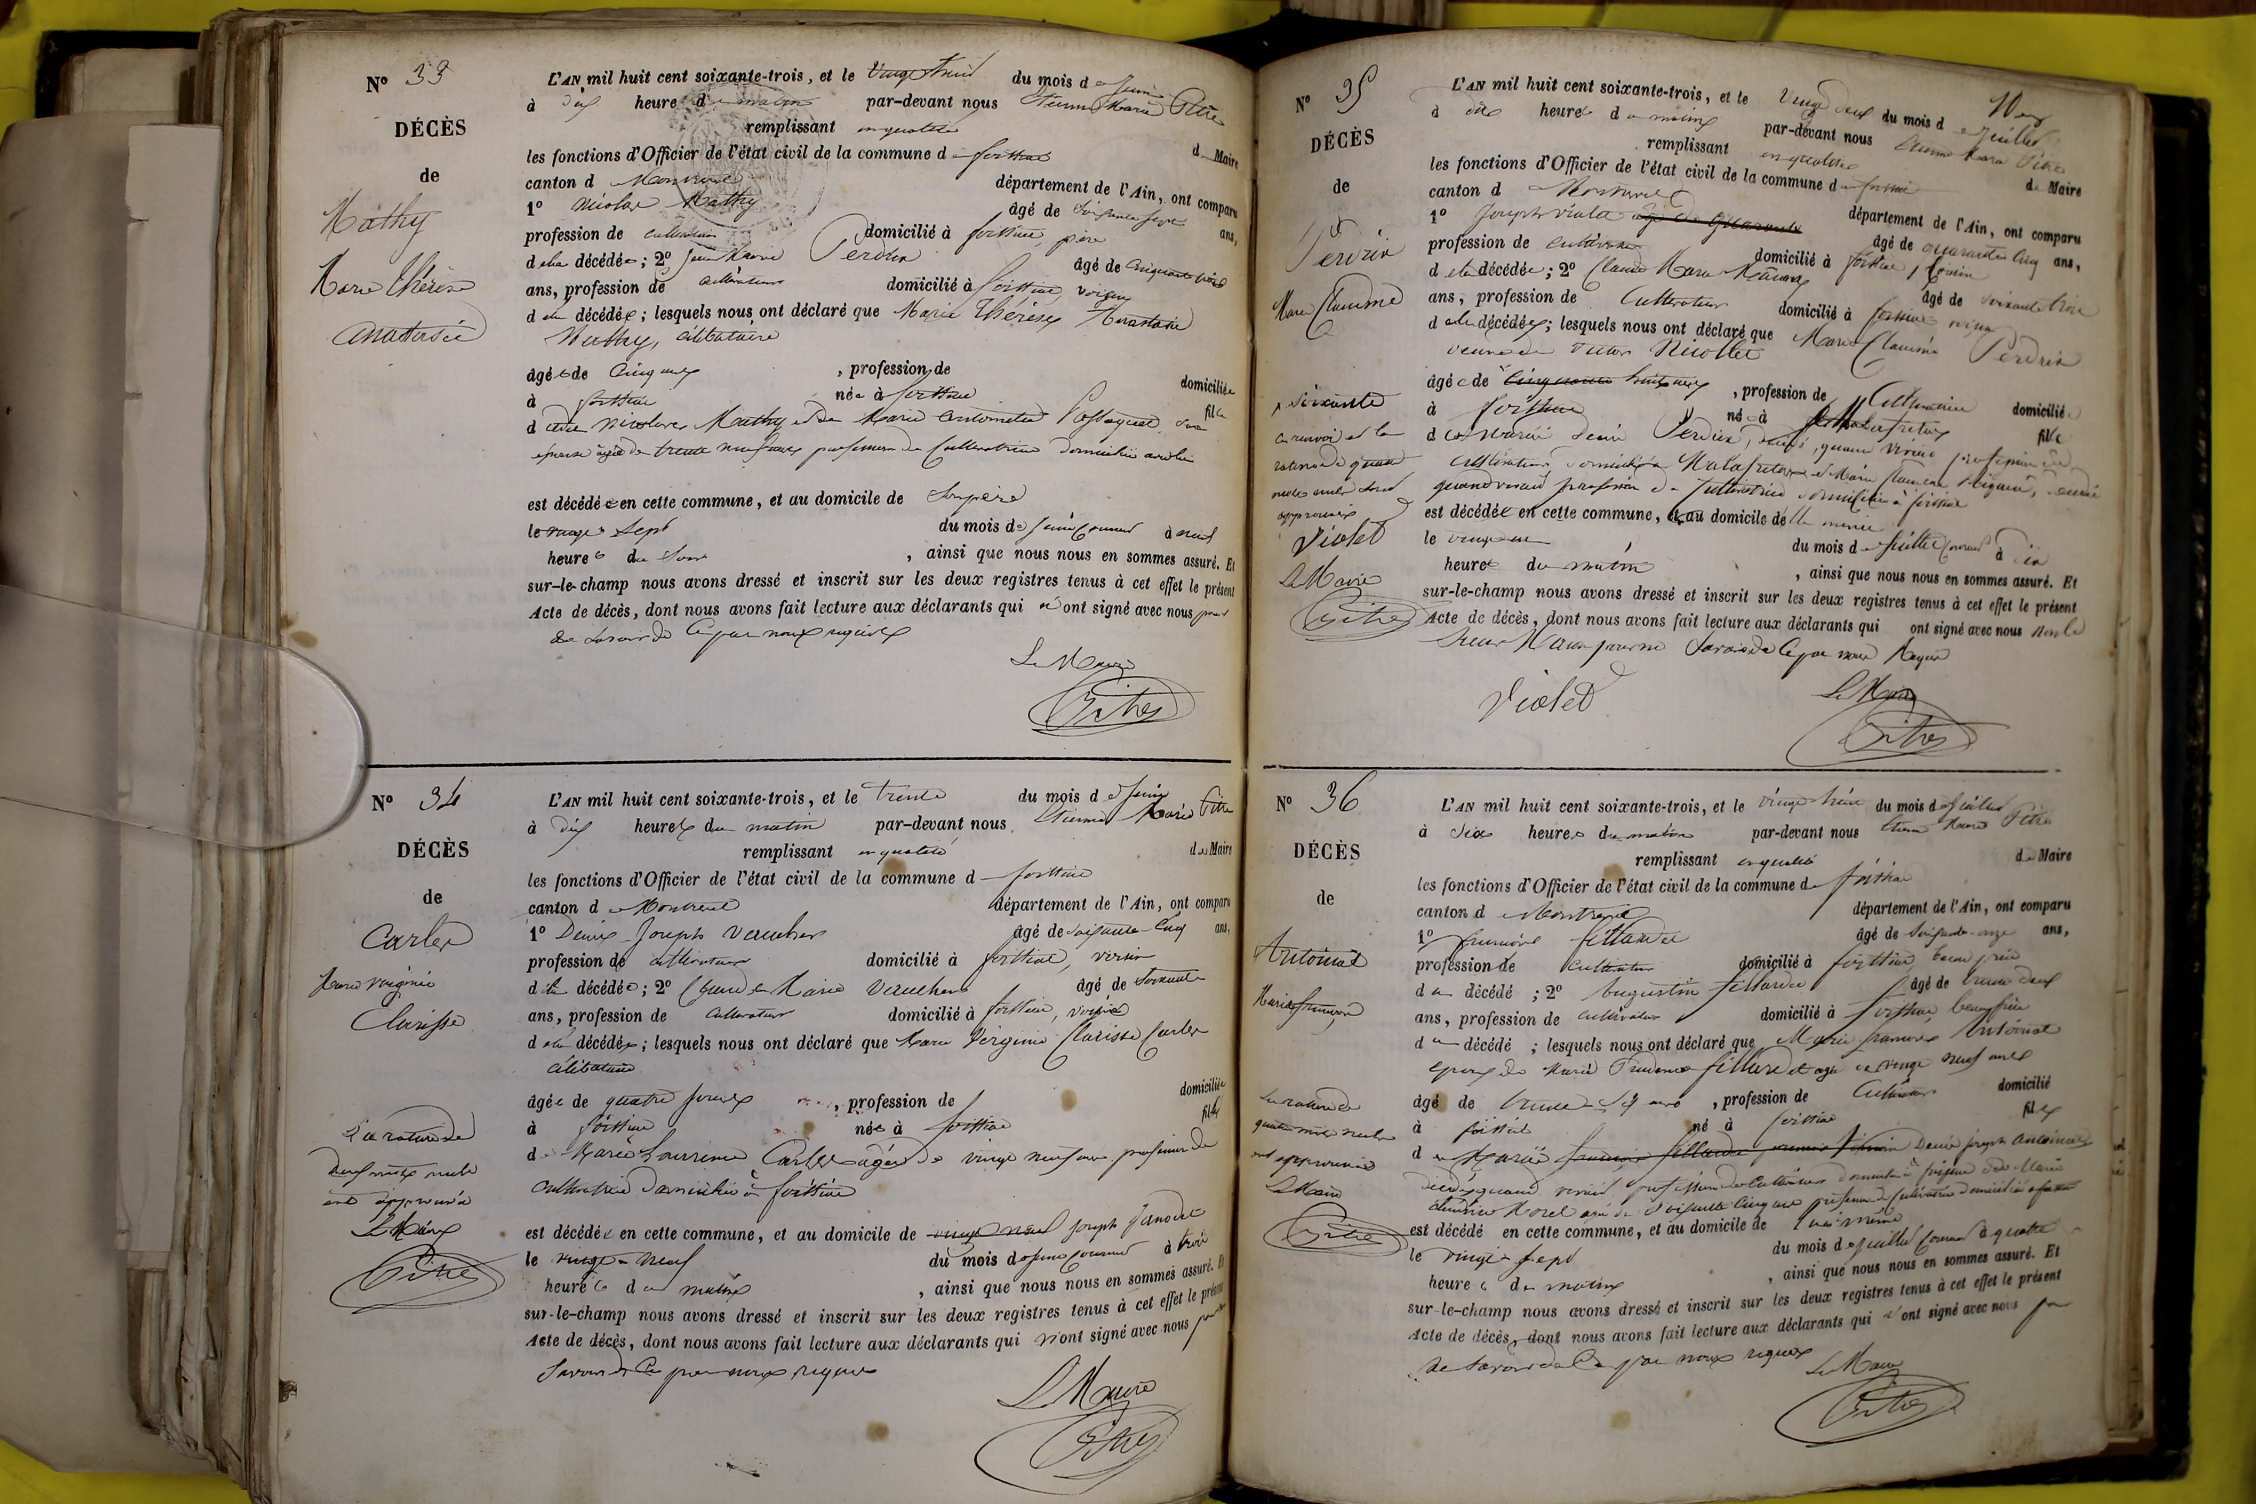 N° 33
DÉCÈS
de
Mathy
Marie Thérèse
anastasie
L'AN mil huit cent soixante-trois, et le Vingt huit du mois de Juin
à dix heures du matin par-devant nous Etienne Marie Pitre
remplissant en qualité de Maire
les fonctions d'Officier de l'état civil de la commune de
canton de Montrevel département de l'Ain, ont comparu
1° Nicolas Mathy âgé de ans,
profession de cultivateur domicilié à père
de la décédée; 2° Jean Marie Perdrix âgé de cinquante trois
ans, profession de cultivateur domicilié à voisin
de la décédée; lesquels nous ont déclaré que Marie Thérèse Anastasie
Mathy, célibataire
âgée de Cinq ans, profession de domiciliée
à née à fille
de Nicolas Mathy et de Marie Antoinette son
épouse âgée de trente neuf ans profession de Cultivatrice domiciliée
est décédée en cette commune, et au domicile de Son père
le vingt Sept du mois de Juin courant à neuf
heures du Soir, ainsi que nous nous en sommes assuré. Et
sur-le-champ nous avons dressé et inscrit sur les deux registres tenus à cet effet le présent
Acte de décès, dont nous avons fait lecture aux déclarants qui n'ont signé avec nous pour
ne Savoir de ce par nous requis
Le Maire
Pitre
N° 34
DÉCÈS
de
Carlet
Marie Virginie
Clarisse
La rature de
deux mots nuls
est approuvée
Le Maire
Pitre
L'AN mil huit cent soixante-trois, et le trente du mois de Juin
à dix heures du matin par-devant nous Etienne Marie Pitre
remplissant en qualité de Maire
les fonctions d'Officier de l'état civil de la commune de
canton de Montrevel département de l'Ain, ont comparu
1° Denis Joseph Vauchez âgé de Soixante Cinq ans,
profession de cultivateur domicilié à voisin
de la décédée; 2° Claude Marie Vauchez âgé de Soixante
ans, profession de cultivateur domicilié à voisin
de la décédée; lesquels nous ont déclaré que Marie Virginie Clarisse Carlet
célibataire
âgée de quatre jours, profession de domiciliée
à née à fille
de Marie Laurence Carlet âgée de vingt neuf ans profession de
cultivatrice domiciliée à
est décédée en cette commune, et au domicile de vingt neuf Joseph
le vingt-neuf du mois de Juin courant à trois
heures du matin, ainsi que nous nous en sommes assuré. Et
sur-le-champ nous avons dressé et inscrit sur les deux registres tenus à cet effet le présent
Acte de décès, dont nous avons fait lecture aux déclarants qui n'ont signé avec nous pour
Savoir de Ce par nous requis
Le Maire
Pitre
N° 35
DÉCÈS
de
Perdrix
Marie Claudine
soixante
ce renvoi et la
rature de quatre
mots nuls sont
approuvés
Violet
Le Maire
Pitre
L'AN mil huit cent soixante-trois, et le Vingt deux du mois de Juillet
à dix heures du matin par-devant nous Etienne Marie Pitre
remplissant en qualité de Maire
les fonctions d'Officier de l'état civil de la commune de
canton de Montrevel département de l'Ain, ont comparu
1° Joseph Violet âgé de quarante âgé de quarante Cinq ans,
profession de cultivateur domicilié à voisin
de la décédée; 2° Claude Marie âgé de soixante trois
ans, profession de Cultivateur domicilié à voisin
de la décédée; lesquels nous ont déclaré que Marie Claudine Perdrix
veuve de Nicollet
âgée de Cinquante huit ans, profession de Cultivatrice domiciliée
à née à fille
de mariés Denis Perdrix, décédé, quand vivait profession de
cultivateur domicilié à Malafretaz et Marie décédée
quand vivait profession de Cultivatrice domiciliée à
est décédée en cette commune, et au domicile d'elle même
le vingt un du mois de Juillet courant à dix
heures du matin, ainsi que nous nous en sommes assuré. Et
sur-le-champ nous avons dressé et inscrit sur les deux registres tenus à cet effet le présent
Acte de décès, dont nous avons fait lecture aux déclarants qui ont signé avec nous non le
Sieur pour ne Savoir de Ce par nous Requis
Violet
Le Maire
Pitre
N° 36
DÉCÈS
de
Antoinat
Marie François
La rature de
quatre mots nuls
est approuvée
Le Maire
Pitre
L'AN mil huit cent soixante-trois, et le vingt huit du mois de Juillet
à Six heures du matin par-devant nous Etienne Marie Pitre
remplissant en qualité de Maire
les fonctions d'Officier de l'état civil de la commune de
canton de Montrevel département de l'Ain, ont comparu
1° âgé de Soixante-onze ans,
profession de Cultivateur domicilié à beau père
du décédé; 2° Augustin âgé de trente deux
ans, profession de cultivateur domicilié à beau frère
du décédé; lesquels nous ont déclaré que Marie François Antoinat
époux de Marie âgée de vingt neuf ans
âgé de trente Six ans, profession de Cultivateur domicilié
à né à fils
de Mariés Denis Joseph Antoinat
décédé quand vivait profession de Cultivateur domicilié à et de Marie
Morel âgée de Soixante Cinq ans profession de Cultivatrice domiciliée à
est décédé en cette commune, et au domicile de lui même
le vingt-sept du mois de Juillet courant à quatre
heures du matin, ainsi que nous nous en sommes assuré. Et
sur-le-champ nous avons dressé et inscrit sur les deux registres tenus à cet effet le présent
Acte de décès, dont nous avons fait lecture aux déclarants qui n'ont signé avec nous pour
ne Savoir de Ce par nous requis
Le Maire
Pitre